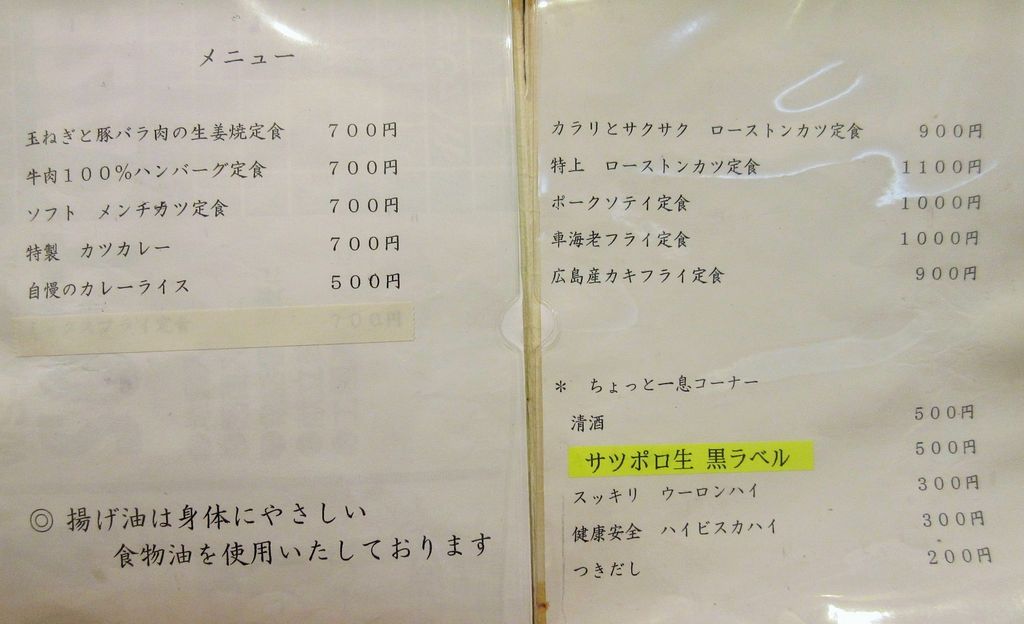 メニュー
玉ねぎと豚バラ肉の生姜焼定食　７００円
牛肉１００％ハンバーグ定食　７００円
ソフト　メンチカツ定食　７００円
特製　カツカレー　７００円
自慢のカレーライス　５００円
ミックスフライ定食　７００円
◎ 揚げ油は身体にやさしい
食物油を使用いたしております
カラリとサクサク　ローストンカツ定食　９００円
特上　ローストンカツ定食　１１００円
ポークソテイ定食　１０００円
車海老フライ定食　１０００円
広島産カキフライ定食　９００円
＊　ちょっと一息コーナー
清酒　５００円
サツポロ生 黒ラベル　５００円
スッキリ　ウーロンハイ　３００円
健康安全　ハイビスカハイ　３００円
つきだし　２００円